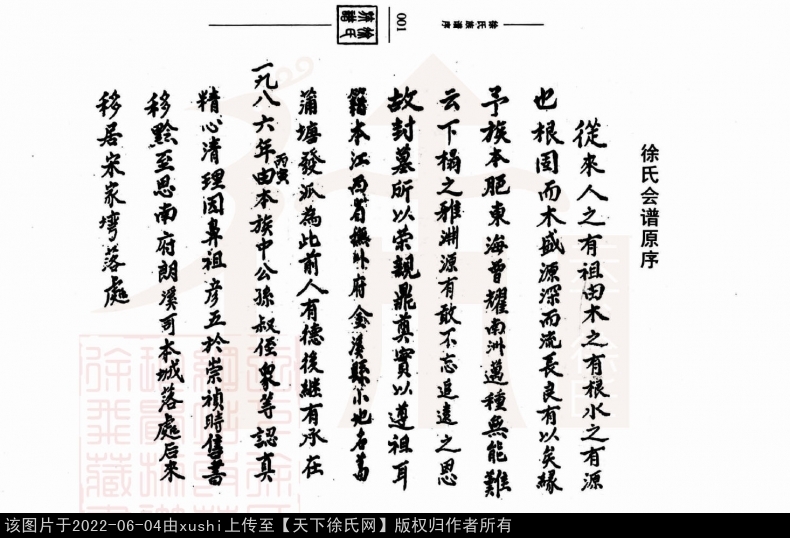 徐氏族谱序
001
徐氏族譜
徐氏会谱原序
從來人之有祖由木之有根水之有源
也根固而木盛源深而流長良有以矣緣
予族本肥東海曾耀南洲邁種無能難
云下榻之雅淵源有敢不忘追遠之思
故封墓所以荣親鼎奠實以遵祖耳
籍本江西省撫州府金溪縣小地名葛
蒲塘發派為此前人有德後継有承在
一九八六年丙寅由本族中公孫叔侄衆等認真
精心清理因鼻祖彦五於崇禎時售書
移黔至思南府朗溪司本城落處后来
移居宋家塆落處
该图片于2022-06-04由xushi上传至【天下徐氏网】版权归作者所有